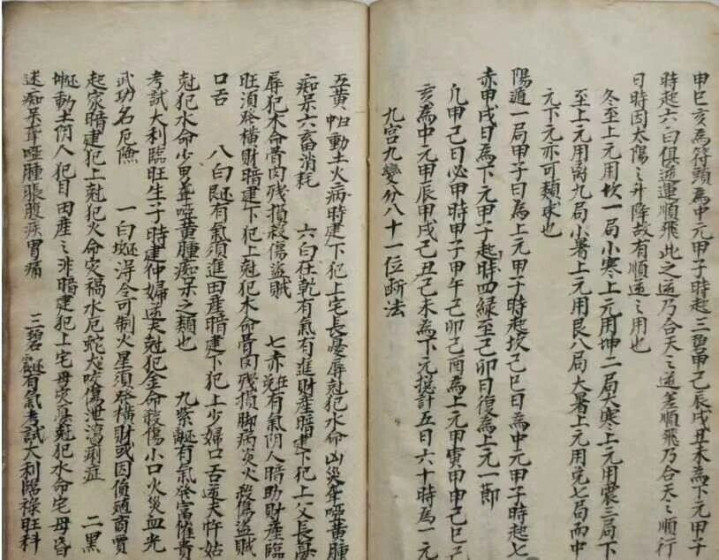 甲巳亥為符頭為中元甲子時起三碧甲己辰戌丑未為下元甲子
時起六白俱逆運順飛此之逆乃合天之道差順飛乃合天之順行
日時因太陽之升降故有順逆之用也
冬至上元用坎一局小寒上元用坤二局大寒上元用震三局下
至上元用离九局小暑上元用艮八局大暑上元用兑七局而中
元下元亦可類求也
陽遁一局甲子日為上元甲子時起坎己巳日為中元甲子時起七
赤甲戌日為下元甲子起時四緑至己卯日復為上元一節
凡甲己日必甲時甲子甲午己卯己酉為上元甲寅甲申己巳己
亥為中元甲辰甲戌己丑己未為下元揔計五日六十時為一元
九宫九變分八十一位断法
五黄中動土火病時建下犯上宅長憂尅犯水命山災年啞黄腫
痴呆六畜消耗 六白在乾有氣有進財産暗建下犯上父長憂
辱犯木命骨肉残損殺傷盗賊 七赤兑有氣阴人暗助財産臨
旺須發横財暗建下犯上尅犯木命骨肉残損脚病炎火殺傷盗賊
口舌 八白艮有氣須進田産暗建下犯上少婦口舌逆夫忤姑
尅犯水命少男聾啞黄腫痴呆之類也 九紫離有氣發富催貴
考試大利臨旺生子時建仲婦逆夫尅犯金命殺傷小口火災血光
武功名厄險 一白坎浮令可制火星須發横財或因債殖商賈
起家暗建犯上尅犯火命灾禍水厄蛇犬咬傷泄瀉痢症 二黑
坤動土阴人犯目田産之非暗建犯上宅母灾尅犯水命宅母昏
迷痴呆聾啞腫張腹疾胃痛 三碧震有氣考試大利臨禄旺科